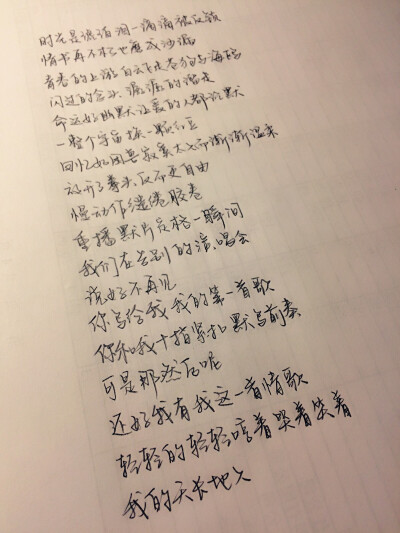 时光是琥珀泪一滴滴被反锁
情书再不朽也磨成沙漏
青春的上游白云飞走苍狗与海鸥
闪过的念头潺潺的溜走
命运好幽默让爱的人都沉默
一整个宇宙换一颗红豆
回忆如困兽寂寞太久而渐渐温柔
放开了拳头反而更自由
慢动作缱绻胶卷
重播默片定格一瞬间
我们在告别的演唱会
说好不再见
你写给我我的第一首歌
你和我十指紧扣默写前奏
可是那然后呢
还好我有我这一首情歌
轻轻的轻轻哼着哭着笑着
我的天长地久